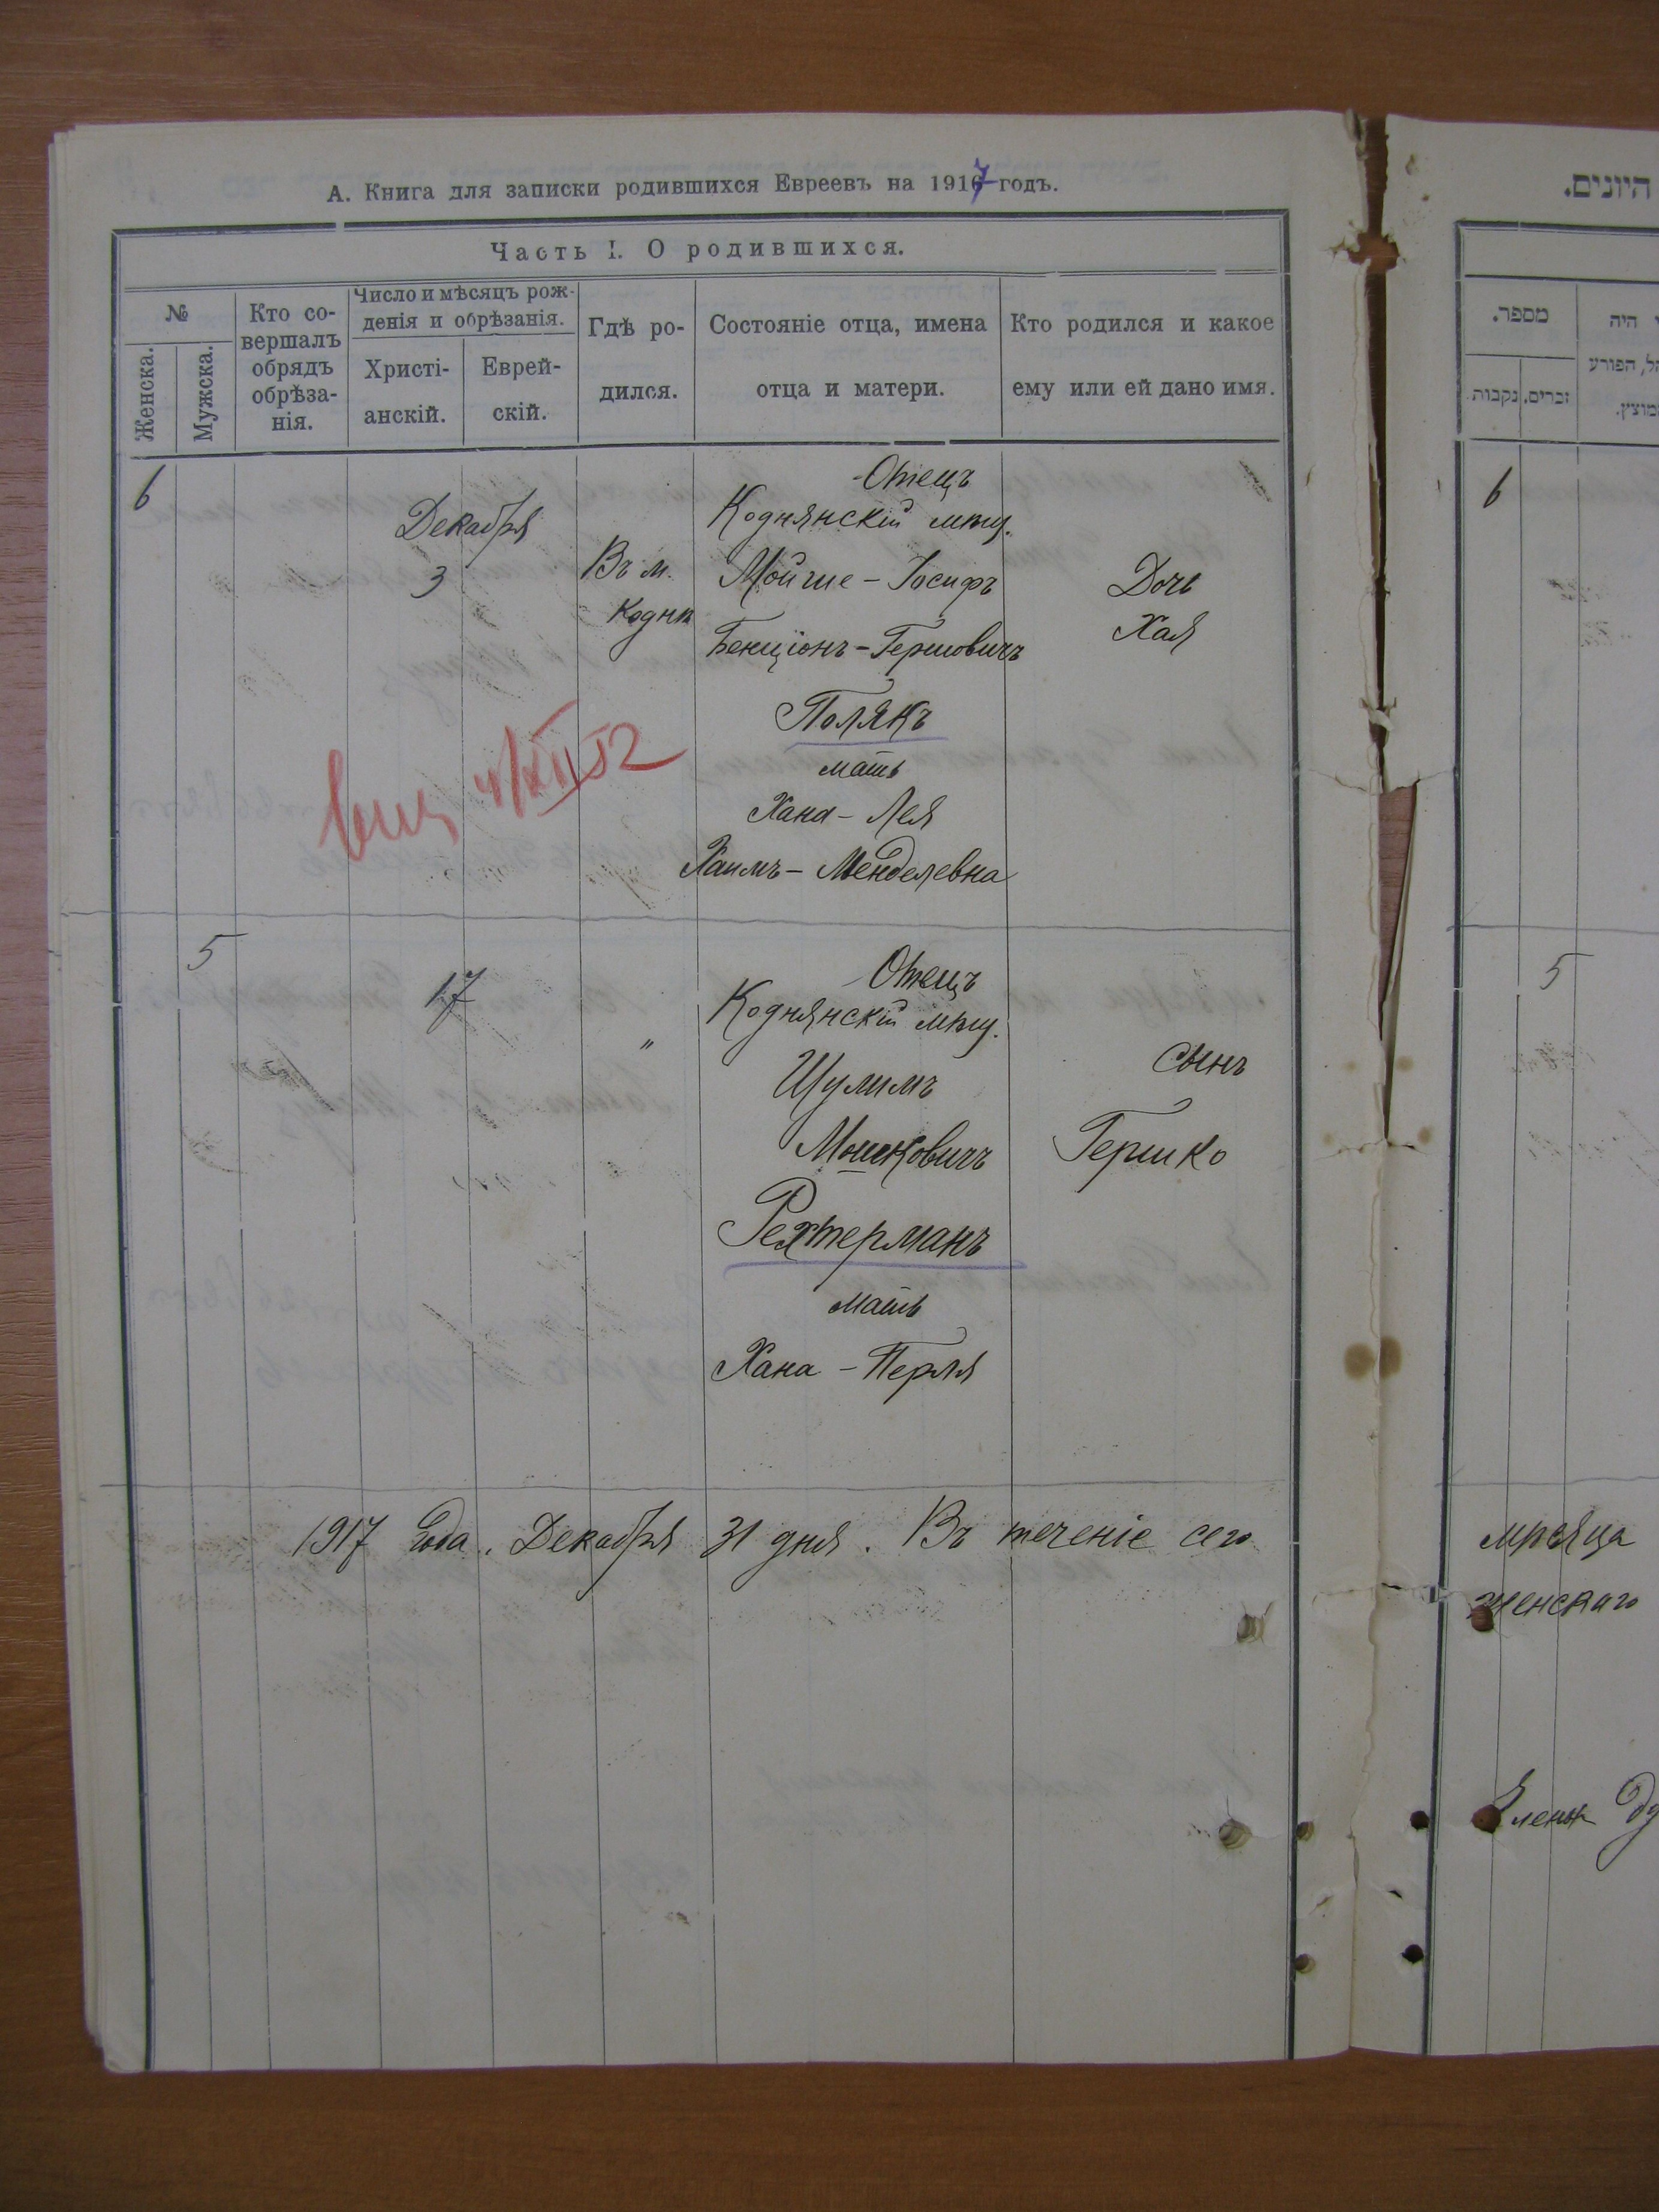 А. Книга для записки родившихся Евреевъ на 1917 годъ.
Часть I. О родившихся.
№
Женска.
Мужска.
Кто со-
вершалъ
обрядъ
обрѣза-
нія.
Число и мѣсяцъ рож-
денія и обрѣзанія.
Христі-
анскій.
Еврей-
скій.
Гдѣ ро-
дился.
Состояніе отца, имена
отца и матери.
Кто родился и какое
ему или ей дано имя.
6
Декабря
3
Въ м.
Кодня
Отецъ
Коднянскій мѣщ.
Мойше - Іосифъ
Бенціонъ - Гершовичъ
Полякъ
мать
Хана - Лея
Хаимъ - Менделевна
Дочь
Хая
4/XII 52
5
17
"
Отецъ
Коднянскій мѣщ.
Шулимъ
Мошковичъ
Рехтерманъ
мать
Хана - Перля
сынъ
Гершко
1917 года. Декабря 31 дня. Въ теченіе сего
היונים.
מספר.
זכרים.
נקבות
היה
הפורע
6
5
мѣсяца
женскаго